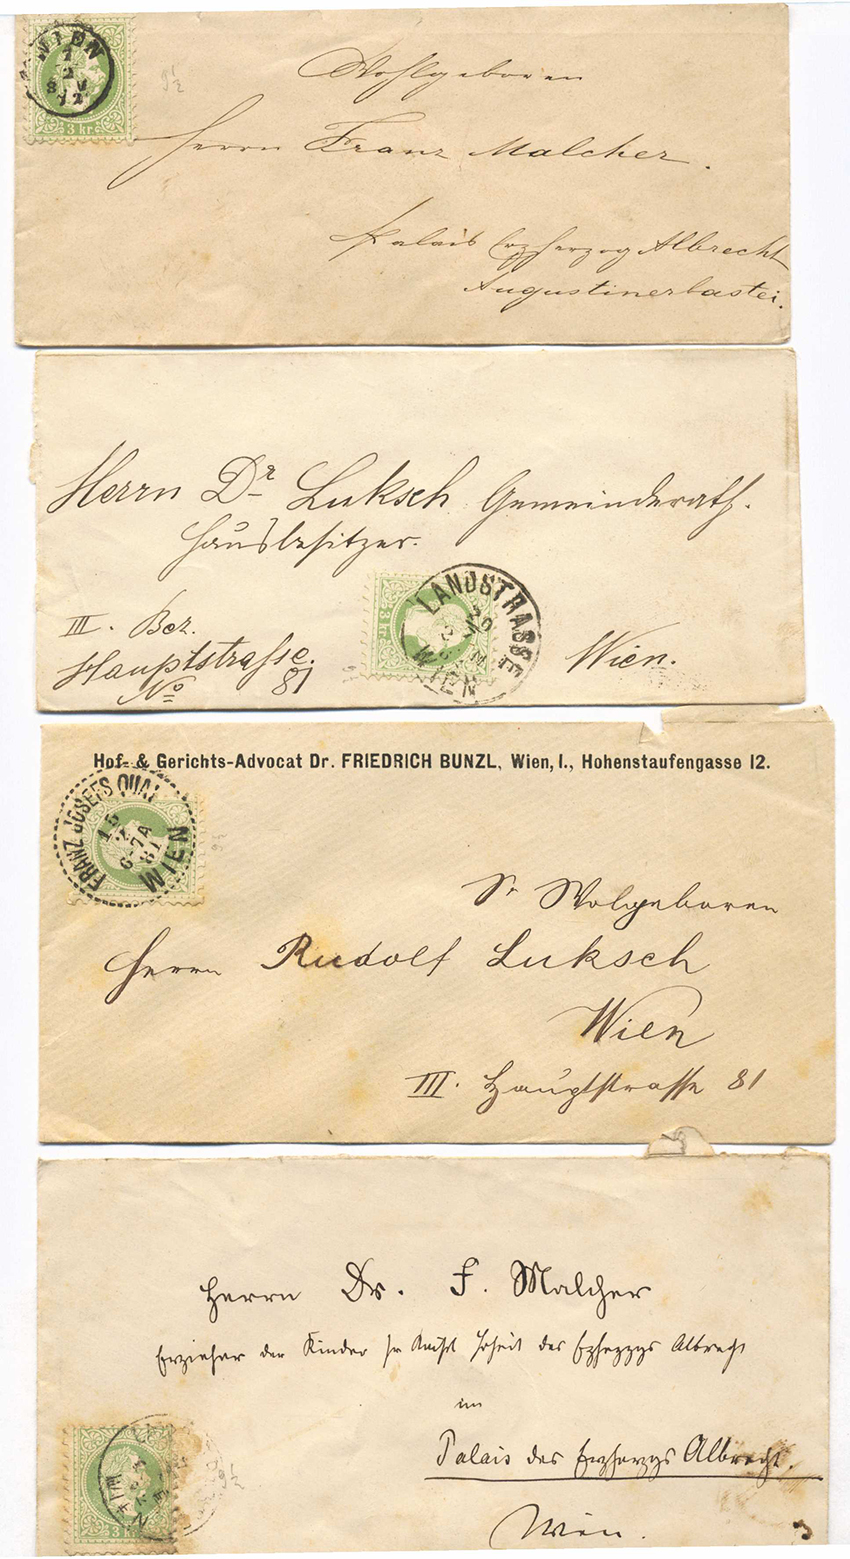 WIEN
1
2
8 V
72
3 kr.
9½
Wohlgeboren
Herrn Franz Malcher.
Palais Erzherzog Albrecht
Augustinerbastei.
Herrn Dr Luksch Gemeinderath.
Hausbesitzer.
LANDSTRASSE
WIEN
3 kr
III. Bez.
Hauptstrasse.
No 81
Wien.
Hof- & Gerichts-Advocat Dr. FRIEDRICH BUNZL, Wien, I., Hohenstaufengasse 12.
FRANZ JOSEFS QUAI
15
6-7A
81
WIEN
Sr Wolgeboren
Herrn Rudolf Luksch
Wien
III. Hauptstrasse 81
Herrn Dr. F. Malcher
Erzieher der Kinder Sr Kaisl Hoheit des Erzherzgs Albrecht
im
Palais des Erzherzgs Albrecht.
Wien.
WIEN
3 kr
9½
3